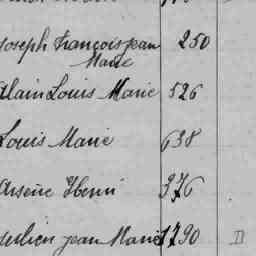 Joseph François Jean 250
Marie
Alain Louis Marie 526
Louis Marie 638
Arsène Henri 376
Jean Marie 1790 D